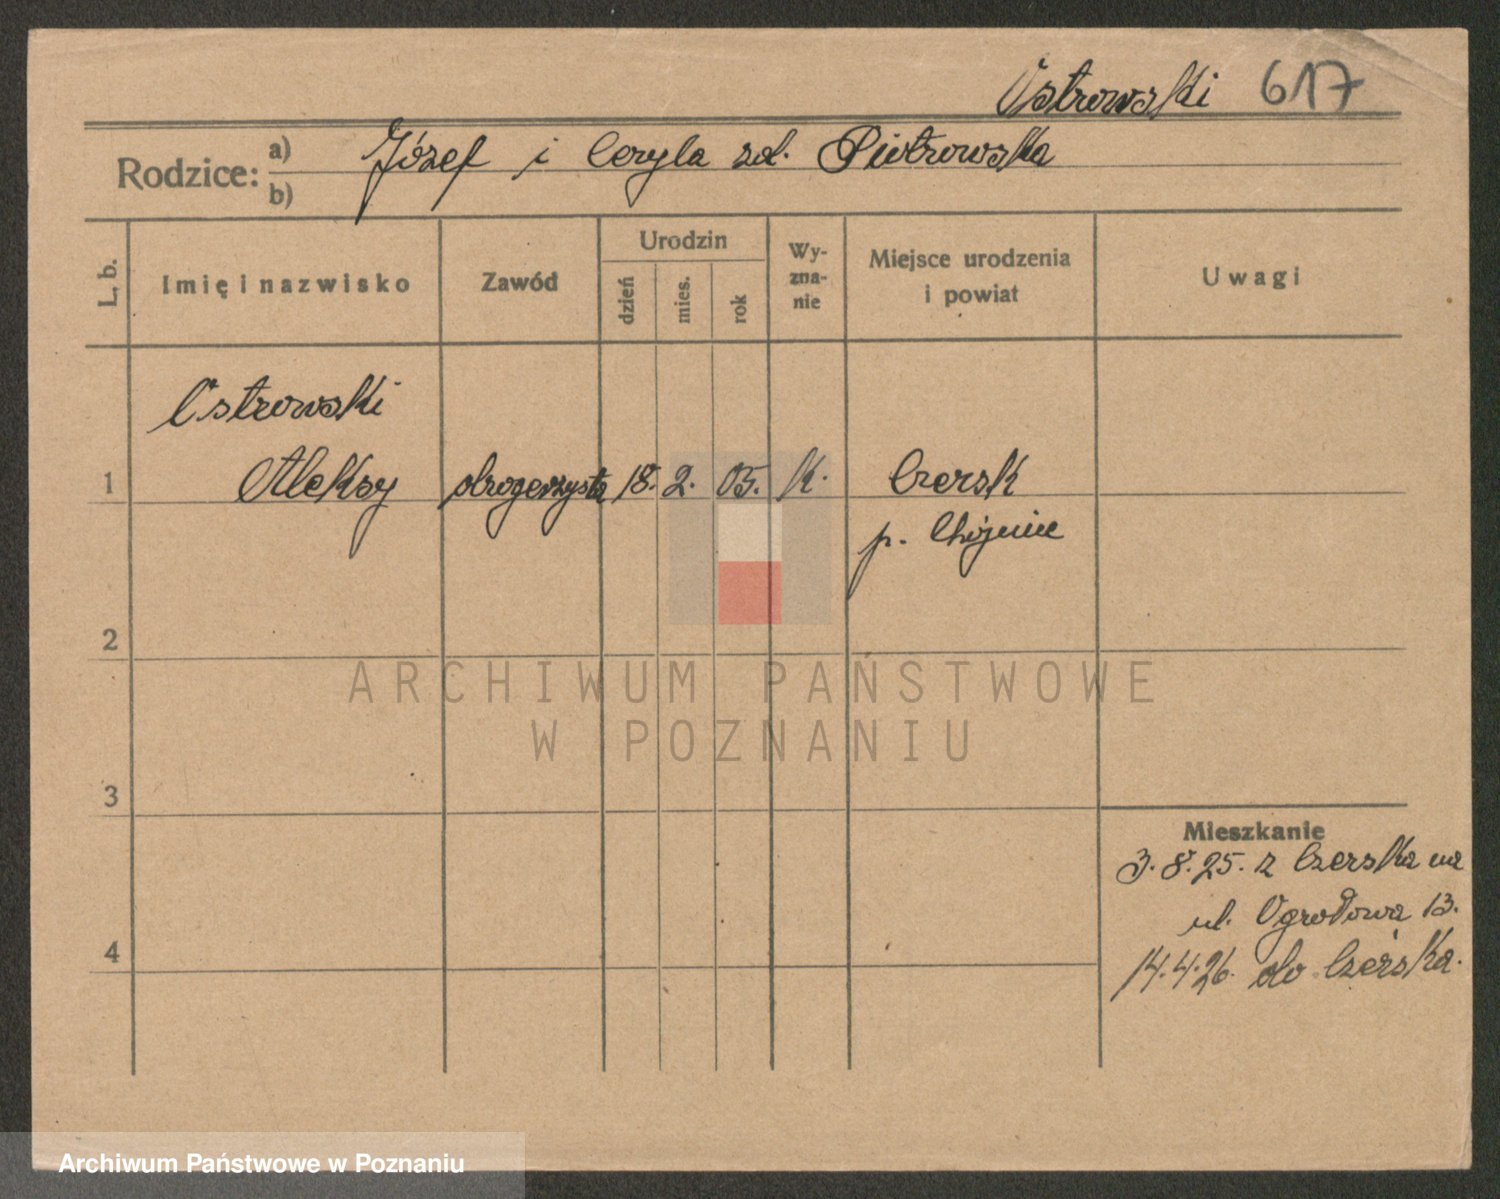 Ostrowski 617
Rodzice: a) Józef i Ceryla zd. Piotrowska
b)
L. b. Imię i nazwisko Zawód Urodzin dzień mies. rok Wy-zna-nie Miejsce urodzenia i powiat Uwagi
Ostrowski
1 Aleksy drogerzysta 18. 2. 05. k. Czersk
p. Chojnice
2
ARCHIWUM PAŃSTWOWE
W POZNANIU
3
Mieszkanie
3.8.25. z Czerska na
ul. Ogrodowa 13.
4 14.4.26. do Czerska.
Archiwum Państwowe w Poznaniu